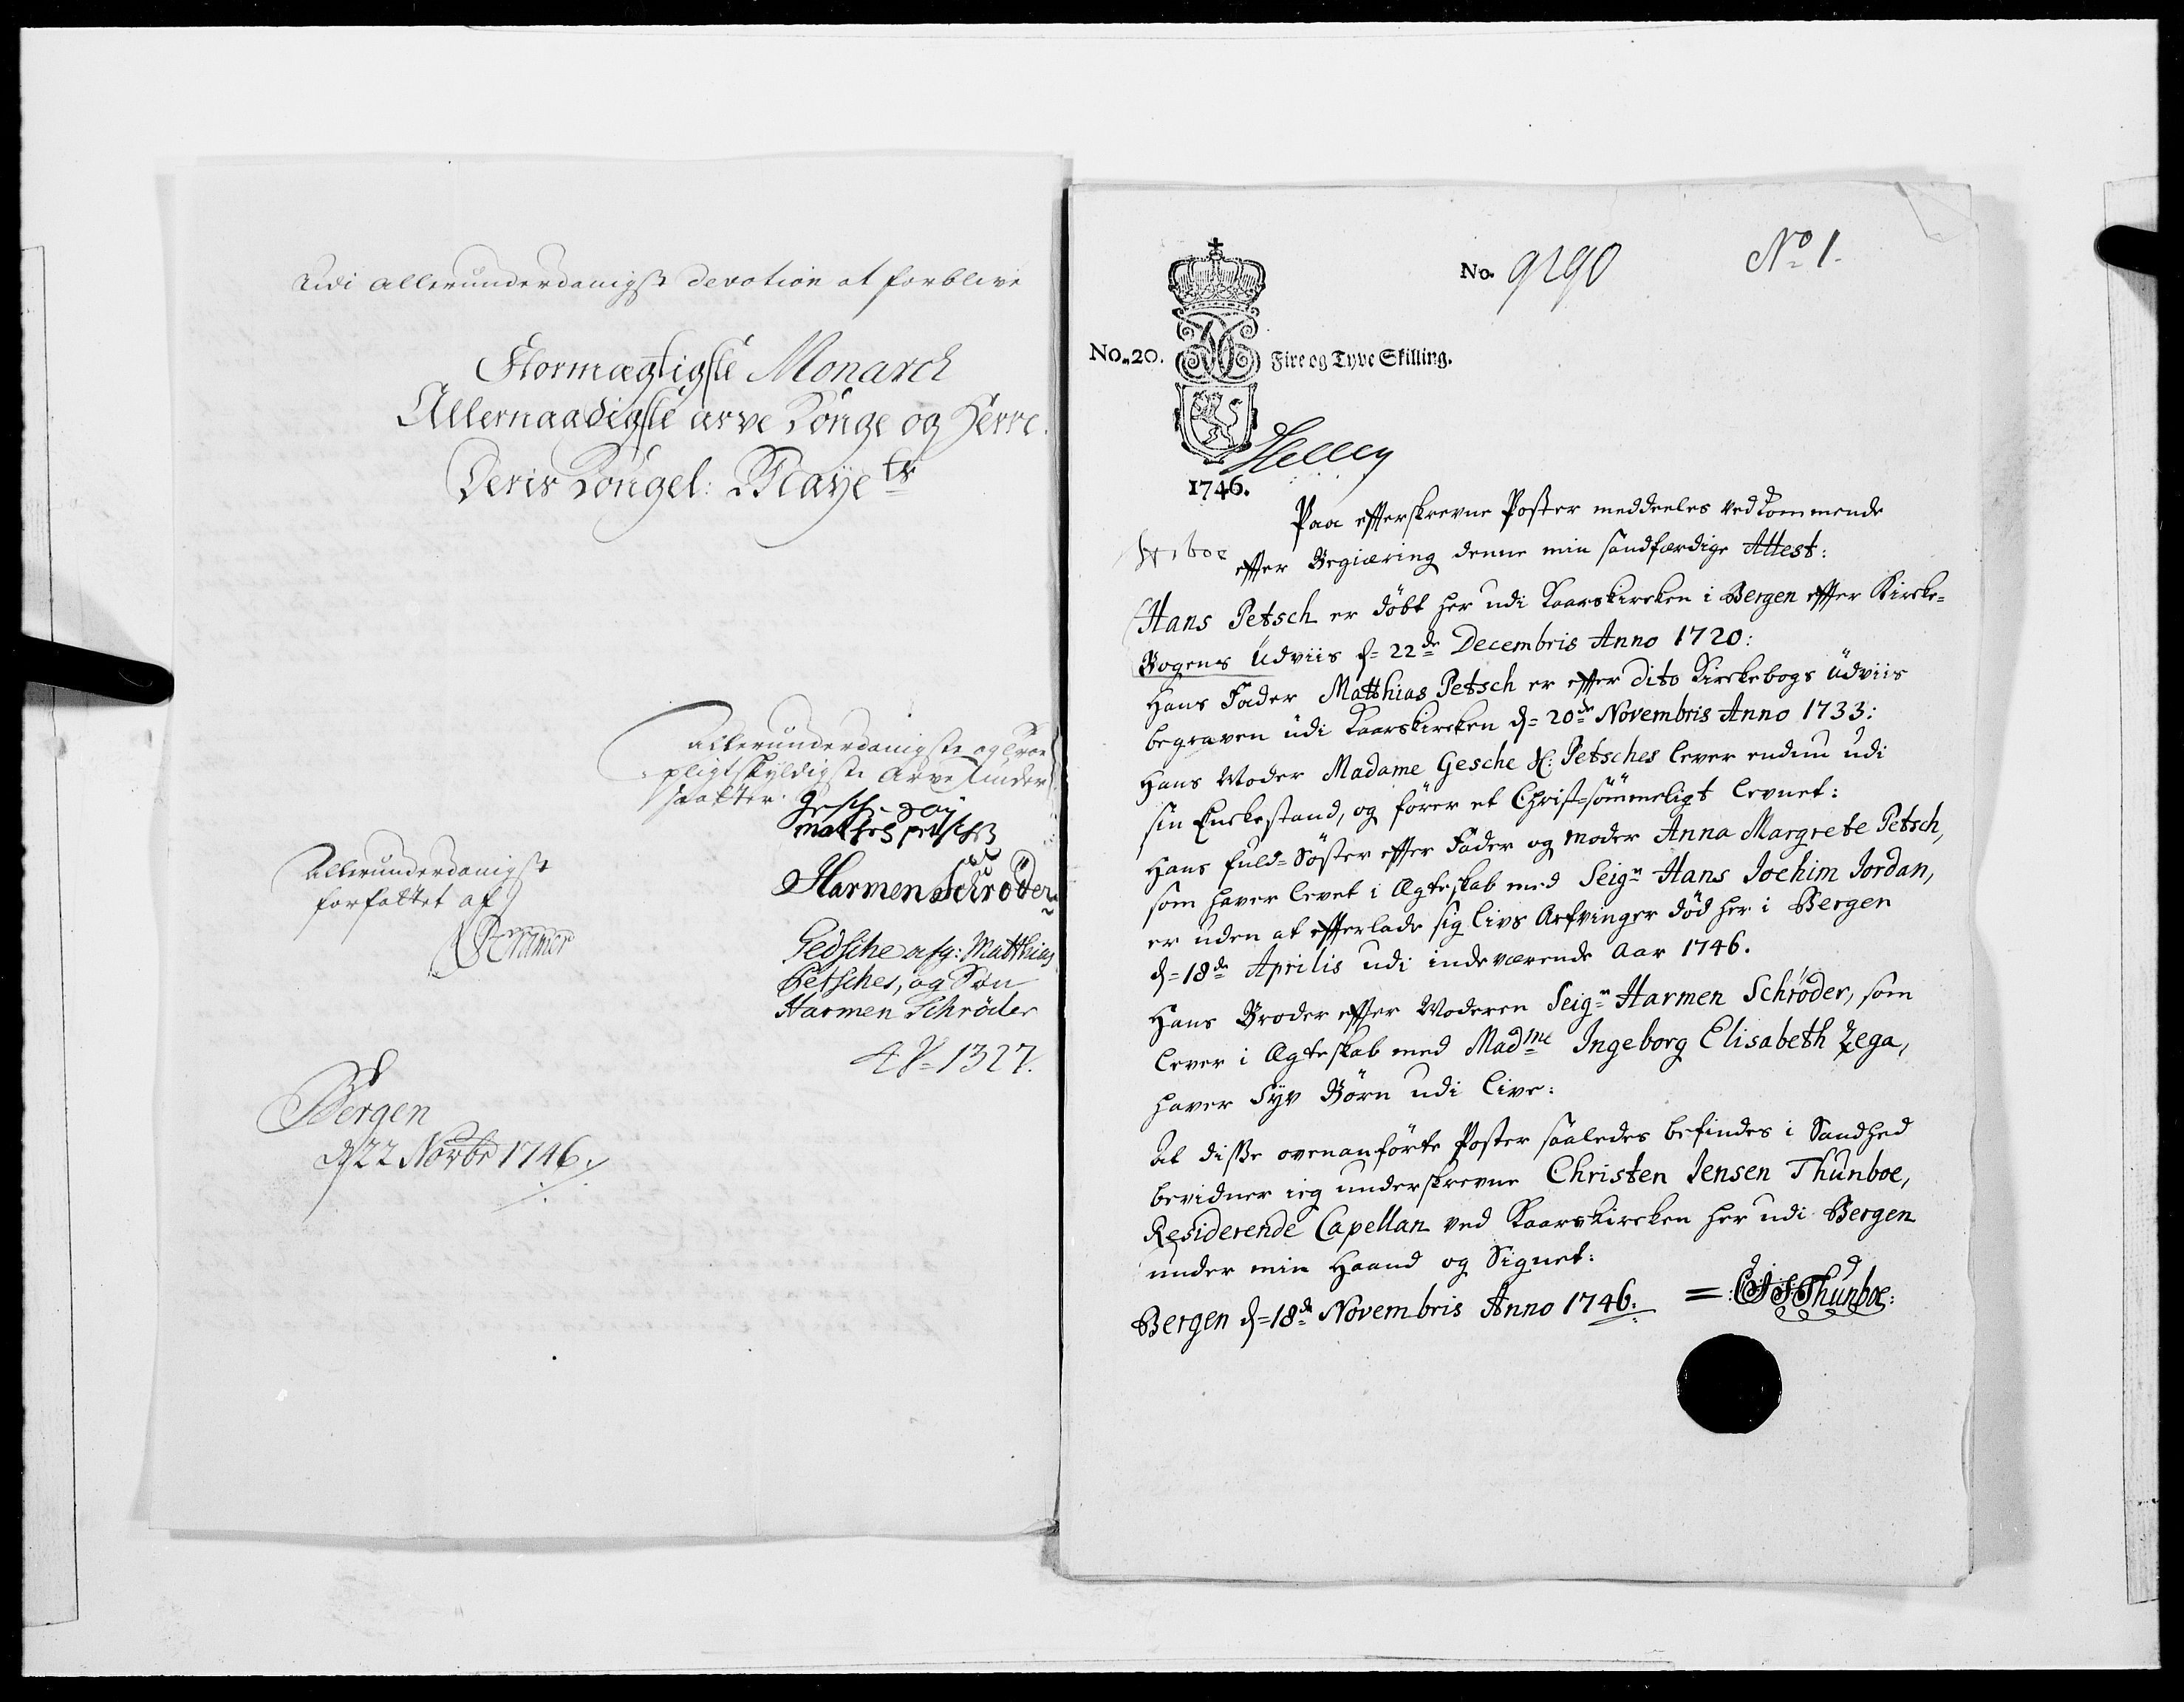 Udi allerunderdanigst devotion at forblive
Stormægtigste Monarch
Allernaadigste arve Konge og Herre.
Deris Kongel: Mayets
allerunderdanigste og troe
pligtskyldigste arve under
saatter.
mathes petsches
Harmen Schröder
Allerunderdanigst
forfattet af
Gedsche afg: Matthias
Petsches, og Søn
Harmen Schröder
1327.
Bergen
d 22 Novbr 1746.
No. 9290
No 1.
No. 20. Fire og Tyve Skilling.
1746.
Paa efterskrevne Poster meddeeles vedkommende
efter Begiæring denne min sandfærdige Attest:
Hans Petsch er döbt her udi Kaarskircken i Bergen efter Kirke-
Bogens Udviis d= 22de Decembris Anno 1720:
Hans Fader Matthias Petsch er efter dito Kirkebogs Udviis
begraven udi Kaarskircken d= 20de Novembris Anno 1733:
Hans Moder Madame Gesche Sl: Petsches lever endnu udi
sin Enkestand, og förer et Christ-sömmeligt levnet:
Hans fuld-Söster efter Fader og Moder Anna Margrete Petsch,
som haver levet i Ægteskab med Seigr Hans Jochim Jordan,
er uden at efterlade sig livs Arfvinger död her i Bergen
d= 18de Aprilis udi indeværende Aar 1746.
Hans Broder efter Moderen Seigr Harmen Schröder, som
lever i Ægteskab med Madme Ingeborg Elisabeth Zega,
haver Syv Börn udi live:
At disse ovenanförte Poster saaledes befindes i Sandhed
bevidner ieg underskrevne Christen Jensen Thunboe,
Residerende Capellan ved Kaarskircken her udi Bergen
under min Haand og Signet:
Bergen d= 18de Novembris Anno 1746. = CJSThunboe: